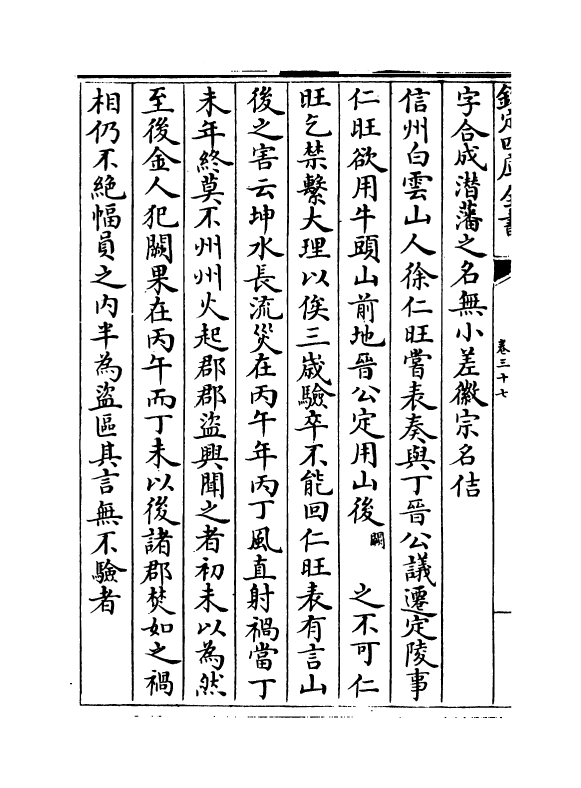 欽定四庫全書
卷三十七
字合成潛藩之名無小差徽宗名佶
信州白雲山人徐仁旺嘗表奏與丁晉公議遷定陵事
仁旺欲用牛頭山前地晉公定用山後闕之不可仁
旺乞禁繫大理以俟三歲驗卒不能回仁旺表有言山
後之害云坤水長流災在丙午年丙丁風直射禍當丁
未年終莫不州州火起郡郡盜興聞之者初未以為然
至後金人犯闕果在丙午而丁未以後諸郡焚如之禍
相仍不絕幅員之内半為盜區其言無不驗者